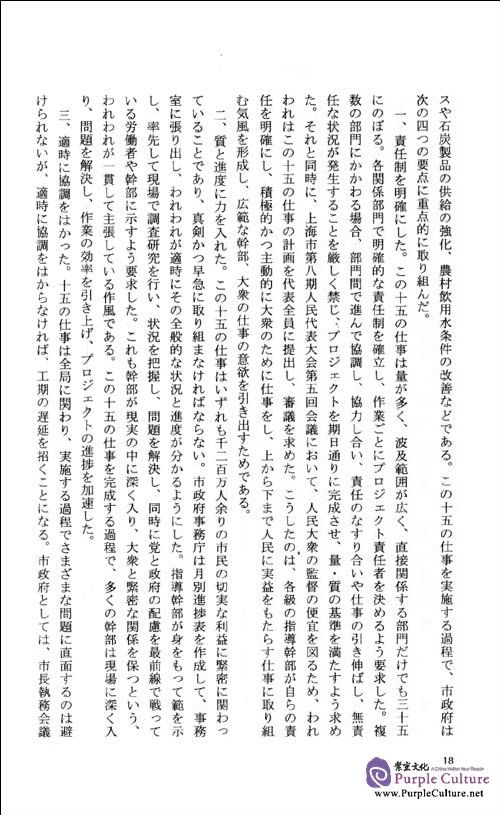 スや石炭製品の供給の強化、農村飲用水条件の改善などである。この十五の仕事を実施する過程で、市政府は
次の四つの要点に重点的に取り組んだ。
一、責任制を明確にした。この十五の仕事は量が多く、波及範囲が広く、直接関係する部門だけでも三十五
にのぼる。各関係部門で明確な責任制を確立し、作業ごとにプロジェクト責任者を決めるよう要求した。複
数の部門にかかわる場合、部門間で進んで協調し、協力し合い、責任のなすり合いや仕事の引き伸ばし、無責
任な状況が発生することを厳しく禁じ、プロジェクトを期日通りに完成させ、量・質の基準を満たすよう求め
た。それと同時に、上海市第八期人民代表大会第五回会議において、人民大衆の監督の便宜を図るため、われ
われはこの十五の仕事の計画を代表全員に提出し、審議を求めた。こうしたのは、各級の指導幹部が自らの責
任を明確にし、積極的かつ主動的に大衆のために仕事をし、上から下まで人民に実益をもたらす仕事に取り組
む気風を形成し、広範な幹部、大衆の仕事の意欲を引き出すためである。
二、質と進度に力を入れた。この十五の仕事はいずれも千二百万人余りの市民の切実な利益に緊密に関わっ
ていることであり、真剣かつ早急に取り組まなければならない。市政府事務庁は月別進捗表を作成して、事務
室に張り出し、われわれが適時にその全般的な状況と進度が分かるようにした。指導幹部が身をもって範を示
し、率先して現場で調査研究を行い、状況を把握し、問題を解決し、同時に党と政府の配慮を最前線で戦って
いる労働者や幹部に示すよう要求した。これも幹部が現実の中に深く入り、大衆と緊密な関係を保つという、
われわれが一貫して主張している作風である。この十五の仕事を完成する過程で、多くの幹部は現場に深く入
り、問題を解決し、作業の効率を引き上げ、プロジェクトの進捗を加速した。
三、適時に協調をはかった。十五の仕事は全局に関わり、実施する過程でさまざまな問題に直面するのは避
けられないが、適時に協調をはからなければ、工期の遅延を招くことになる。市政府としては、市長執務会議
18
紫宸文化 A China Within Your Reach
Purple Culture
www.PurpleCulture.net